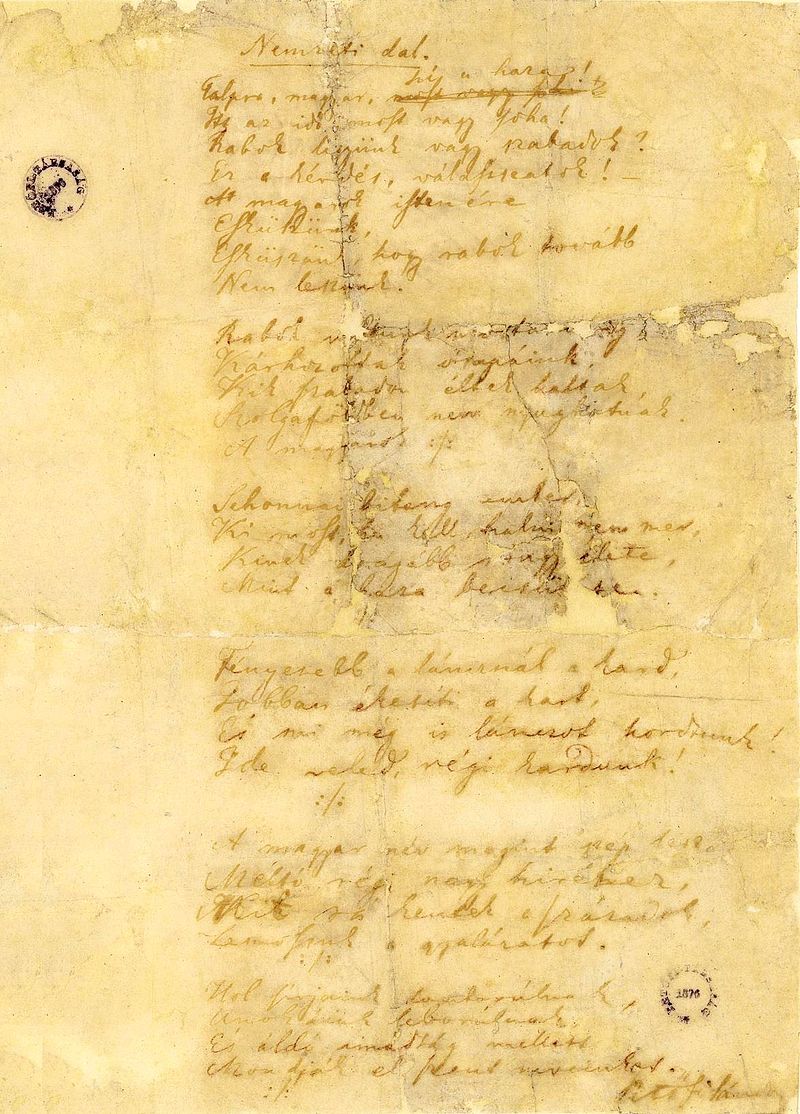 Nemzeti dal.
hí a haza!
Talpra, magyar, most vagy soha!
Itt az idő, most vagy soha!
Rabok legyünk vagy szabadok? –
Ez a kérdés, válasszatok! –
A magyarok istenére
Esküszünk,
Esküszünk, hogy rabok tovább
Nem leszünk.
Rabok voltunk mostanáig,
Kárhozottak ősapáink,
Kik szabadon éltek haltak,
Szolgaföldben nem nyughatnak.
A magyarok :/:
Sehonnai bitang ember,
Ki most, ha kell, halni nem mer,
Kinek drágább rongy élete,
Mint a haza becsülete.
Fényesebb a láncznál a kard,
Jobban ékesíti a kart,
És mi még is lánczot hordtunk!
Ide veled, régi kardunk!
:/:
A magyar név megint szép lesz
Méltó régi nagy hiréhez,
Mit rá kentek a századok,
Lemossuk a gyalázatot.
:/:
Hol sírjaink domborúlnak,
Unokáink leborúlnak,
És áldó imádság mellett
Mondják el szent neveinket.
:/:
Petőfi Sándor
PETŐFI-TÁRSASÁG
PETŐFI-TÁRSASÁG
1876